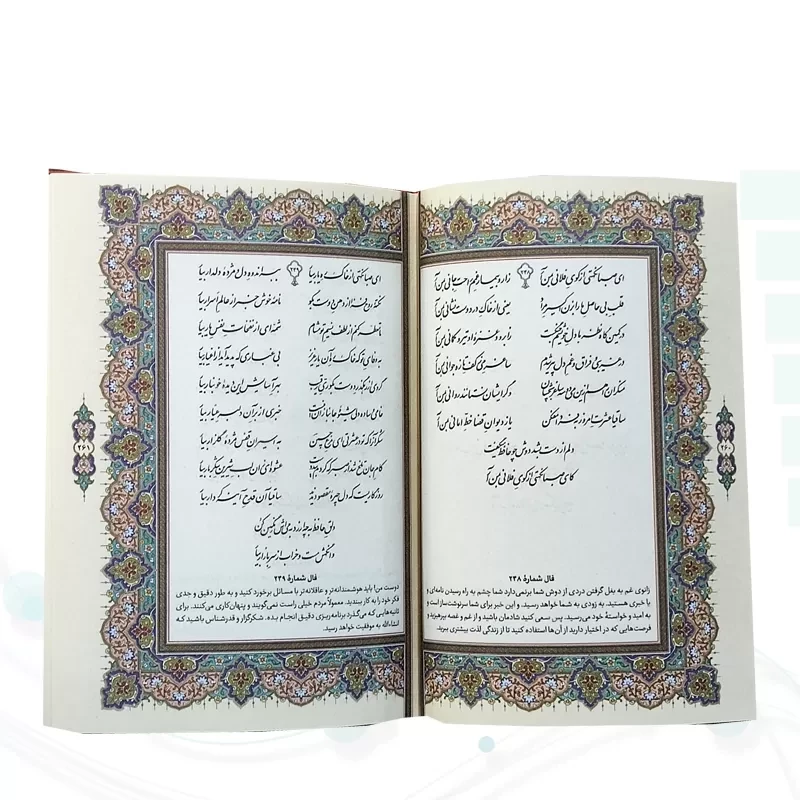 ۲۳۸
ای صبا نکهتی از کوی فلانی به من آر زار و بیمار غمم راحت جانی به من آر
قلب بی حاصل ما را بزن اکسیر مراد یعنی از خاک در دوست نشانی به من آر
در کمینگاه نظر با دل خویشم جنگ است ز ابرو و غمزه او تیر و کمانی به من آر
در غریبی و فراق و غم دل پیر شدم ساغر می ز کف تازه جوانی به من آر
منکران را هم ازین می دو سه ساغر بچشان وگر ایشان نستانند روانی به من آر
ساقیا عشرت امروز به فردا مفکن یا ز دیوان قضا خط امانی به من آر
دلم از دست بشد دوش چو حافظ می‌گفت
کای صبا نکهتی از کوی فلانی به من آر
فال شمارهٔ ۲۳۸
زانوی غم به بغل گرفتن دردی از دوش شما برنمی‌دارد شما چشم به راه رسیدن نامه‌ای و
یا خبری هستید. به زودی به شما خواهد رسید. و این خبر برای شما سرنوشت‌ساز است و
به امید و خواستهٔ خود می‌رسید. پس سعی کنید شادمان باشید و از غم و غصه بپرهیزید و
فرصت‌هایی که در اختیار دارید از آن‌ها استفاده کنید تا از زندگی لذت بیشتری ببرید.
۲۶۰
۲۳۹
ای صبا نکهتی از خاک ره یار بیار ببر اندوه دل و مژده دلدار بیار
نکته روح‌فزا از دهن دوست بگو نامه خوش خبر از عالم اسرار بیار
تا معطر کنم از لطف نسیم تو مشام شمه‌ای از نفحات نفس یار بیار
به وفای تو که خاک ره آن یار عزیز بی غباری که پدید آید از اغیار بیار
گردی از رهگذر دوست به کوری رقیب بهر آسایش این دیده خونبار بیار
خامی و ساده دلی شیوه جانبازان نیست خبری از بر آن دلبر عیار بیار
شکر آن را که تو در عشرتی ای مرغ چمن به اسیران قفس مژده گلزار بیار
کام جان تلخ شد از صبر که کردم بی دوست عشوه‌ای زان لب شیرین شکربار بیار
روزگاریست که دل چهره مقصود ندید ساقیا آن قدح آینه کردار بیار
دلق حافظ به چه ارزد به می‌اش رنگین کن
وانگهش مست و خراب از سر بازار بیار
فال شمارهٔ ۲۳۹
دوست من! باید هوشمندانه‌تر و عاقلانه‌تر با مسائل برخورد کنید و به طور دقیق و جدی
فکر خود را به کار ببندید. معمولاً مردم خیلی راست نمی‌گویند و پنهان‌کاری می‌کنند. برای
ثانیه‌هایی که می‌گذرد برنامه‌ریزی دقیق انجام بده. شکرگزار و قدرشناس باشید که
انشاءالله به موفقیت خواهد رسید.
۲۶۱